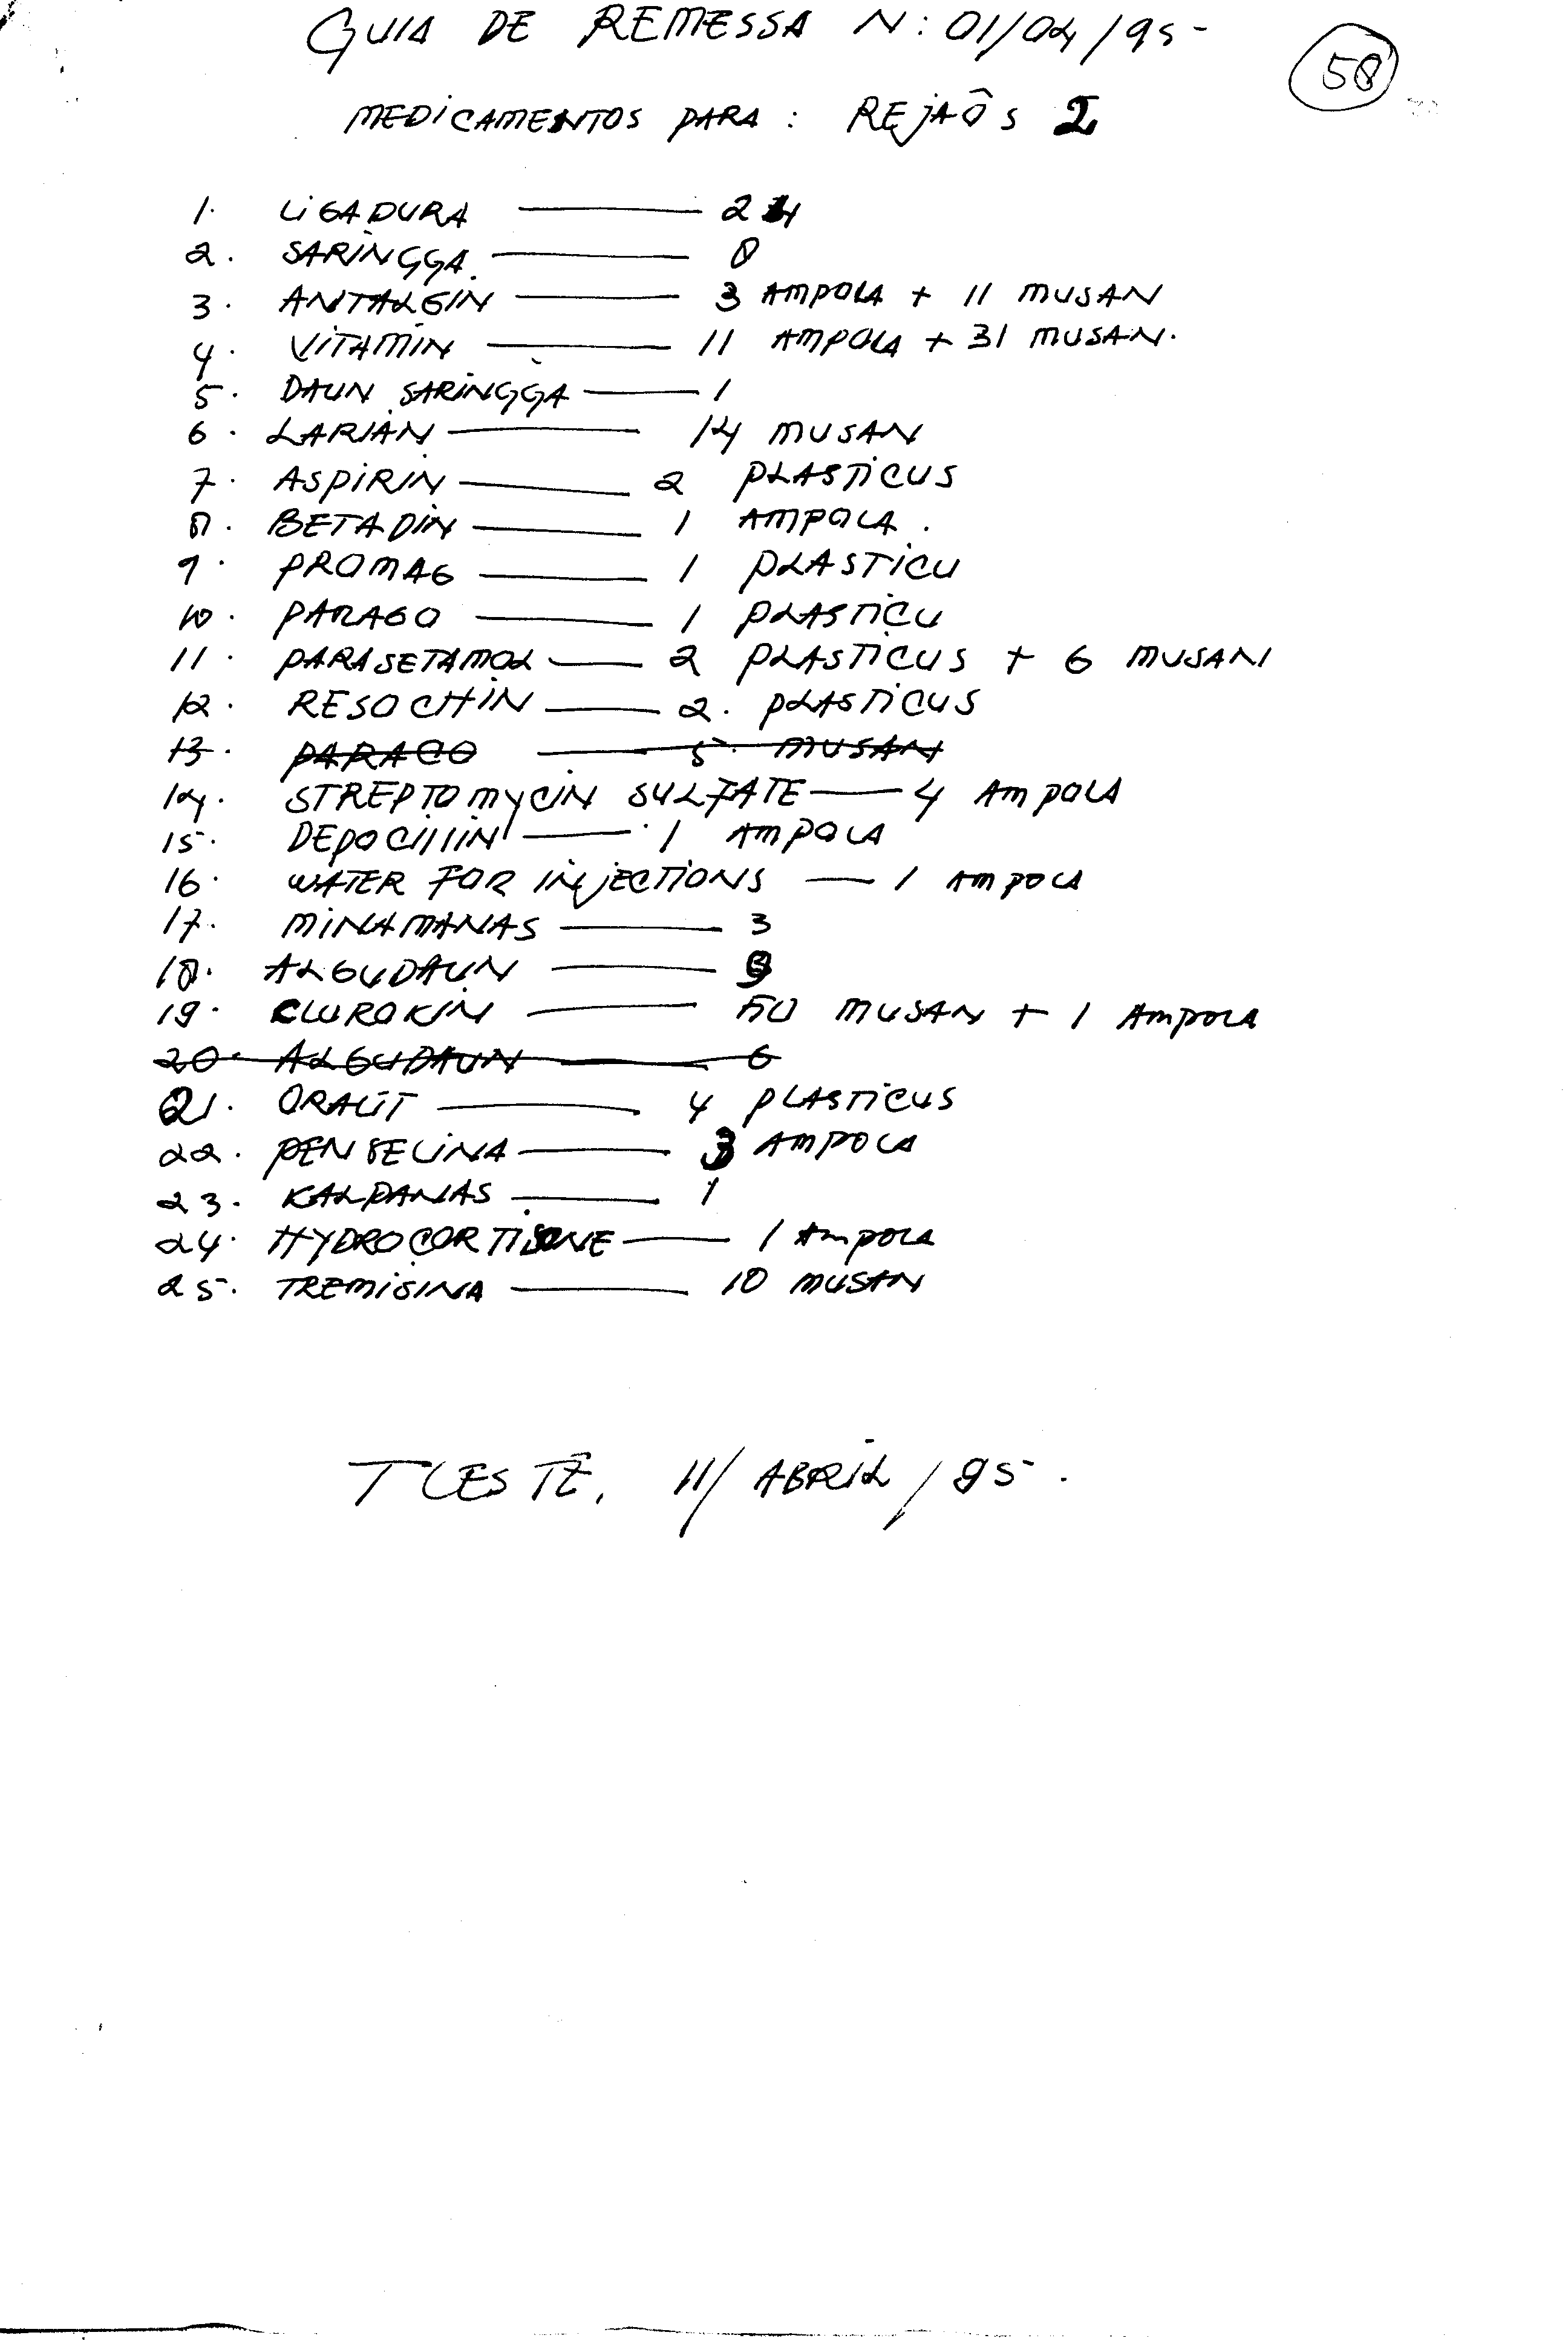 GUIA DE REMESSA N: 01/04/95-
58
MEDICAMENTOS PARA : REJAÔS 2
1. LIGADURA — 24
2. SARINGGA — 8
3. ANTALGIN — 3 AMPOLA + 11 MUSAN
4. VITAMIN — 11 AMPOLA + 31 MUSAN.
5. DAUN SARINGGA — 1
6. LARIAN — 14 MUSAN
7. ASPIRIN — 2 PLASTICUS
8. BETADIN — 1 AMPOLA.
9. PROMAG — 1 PLASTICU
10. PARAGO — 1 PLASTICU
11. PARASETAMOL — 2 PLASTICUS + 6 MUSAN
12. RESOCHIN — 2. PLASTICUS
13. PARACO — 5. MUSAN
14. STREPTOMYCIN SULFATE — 4 AMPOLA
15. DEPOCILLIN — 1 AMPOLA
16. WATER FOR INJECTIONS — 1 AMPOLA
17. MINAMANAS — 3
18. ALGUDAUN —
19. CLUROKIN — 50 MUSAN + 1 AMPOLA
20. ALGUDAUN — 6
21. ORALIT — 4 PLASTICUS
22. PENSELINA — 3 AMPOLA
23. KALPANAS — 1
24. HYDROCORTISONE — 1 AMPOLA
25. TREMISINA — 10 MUSAN
TLESTE, 11/ABRIL/95.